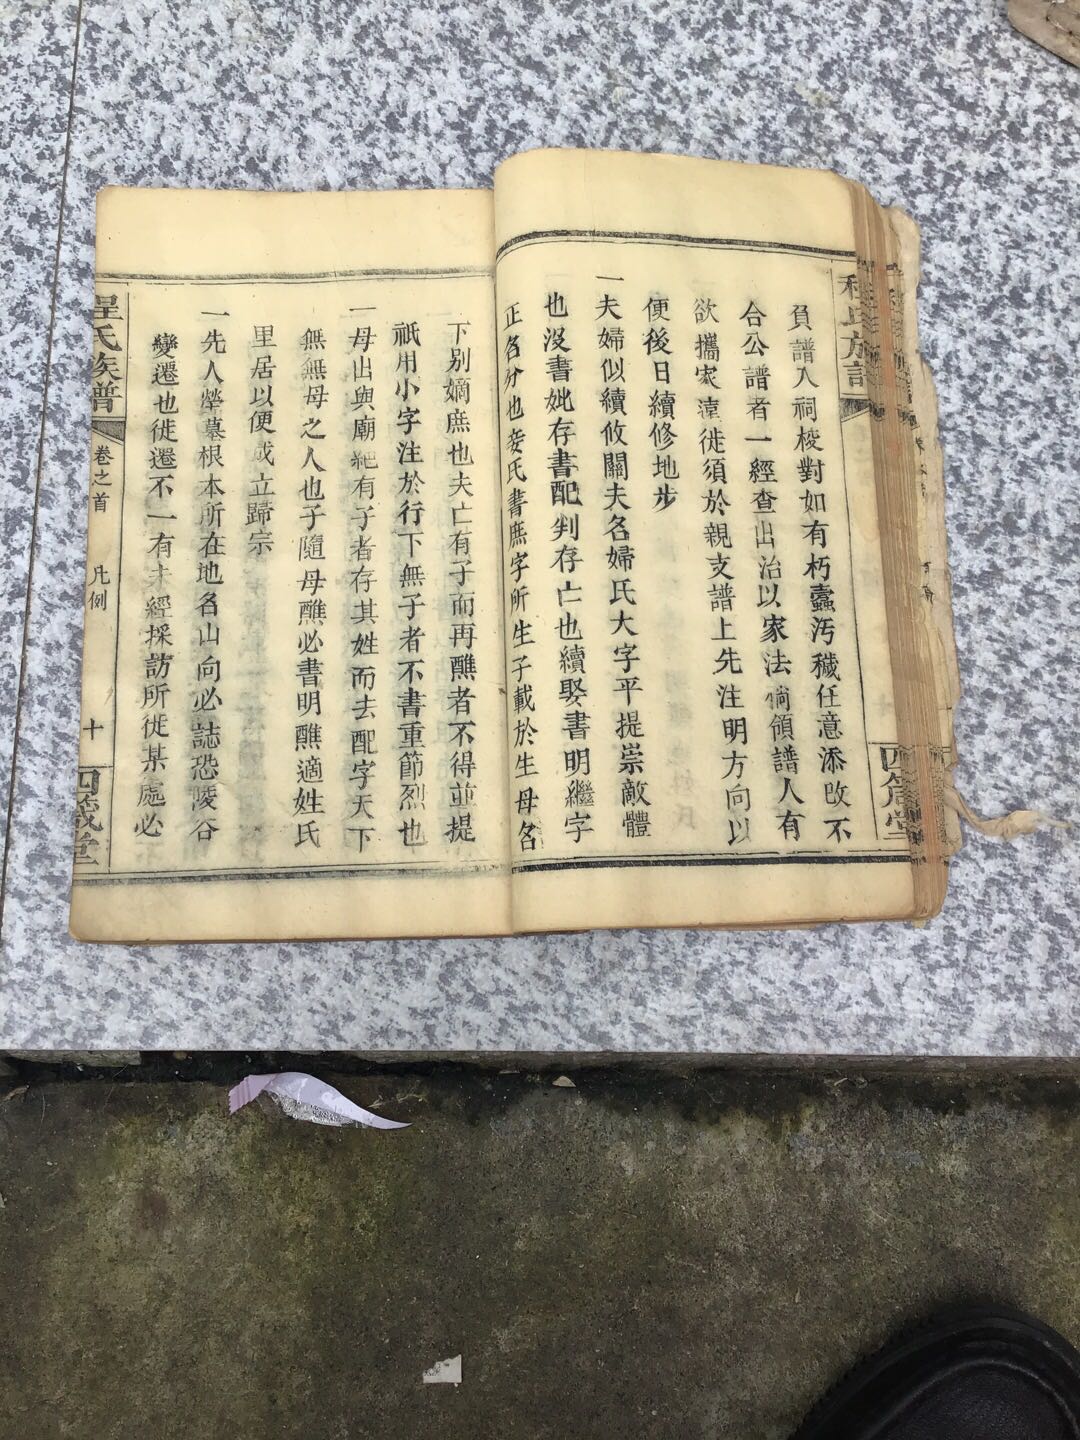 程氏族譜
四箴堂
負譜入祠校對如有朽蠹汚穢任意添改不
合公譜者一經查出治以家法倘領譜人有
欲攜家遠徙須於親支譜上先注明方向以
便後日續修地步
一夫婦似續攸關夫名婦氏大字平提崇敵體
也沒書妣存書配判存亡也續娶書明繼字
正名分也妾氏書庶字所生子載於生母名
下別嫡庶也夫亡有子而再醮者不得並提
祇用小字注於行下無子者不書重節烈也
一母出與廟絕有子者存其姓而去配字天下
無無母之人也子隨母醮必書明醮適姓氏
里居以便成立歸宗
一先人塋墓根本所在地名山向必誌恐陵谷
變遷也徙遷不一有未經採訪所徙某處必
程氏族譜 卷之首 凡例 十 四箴堂